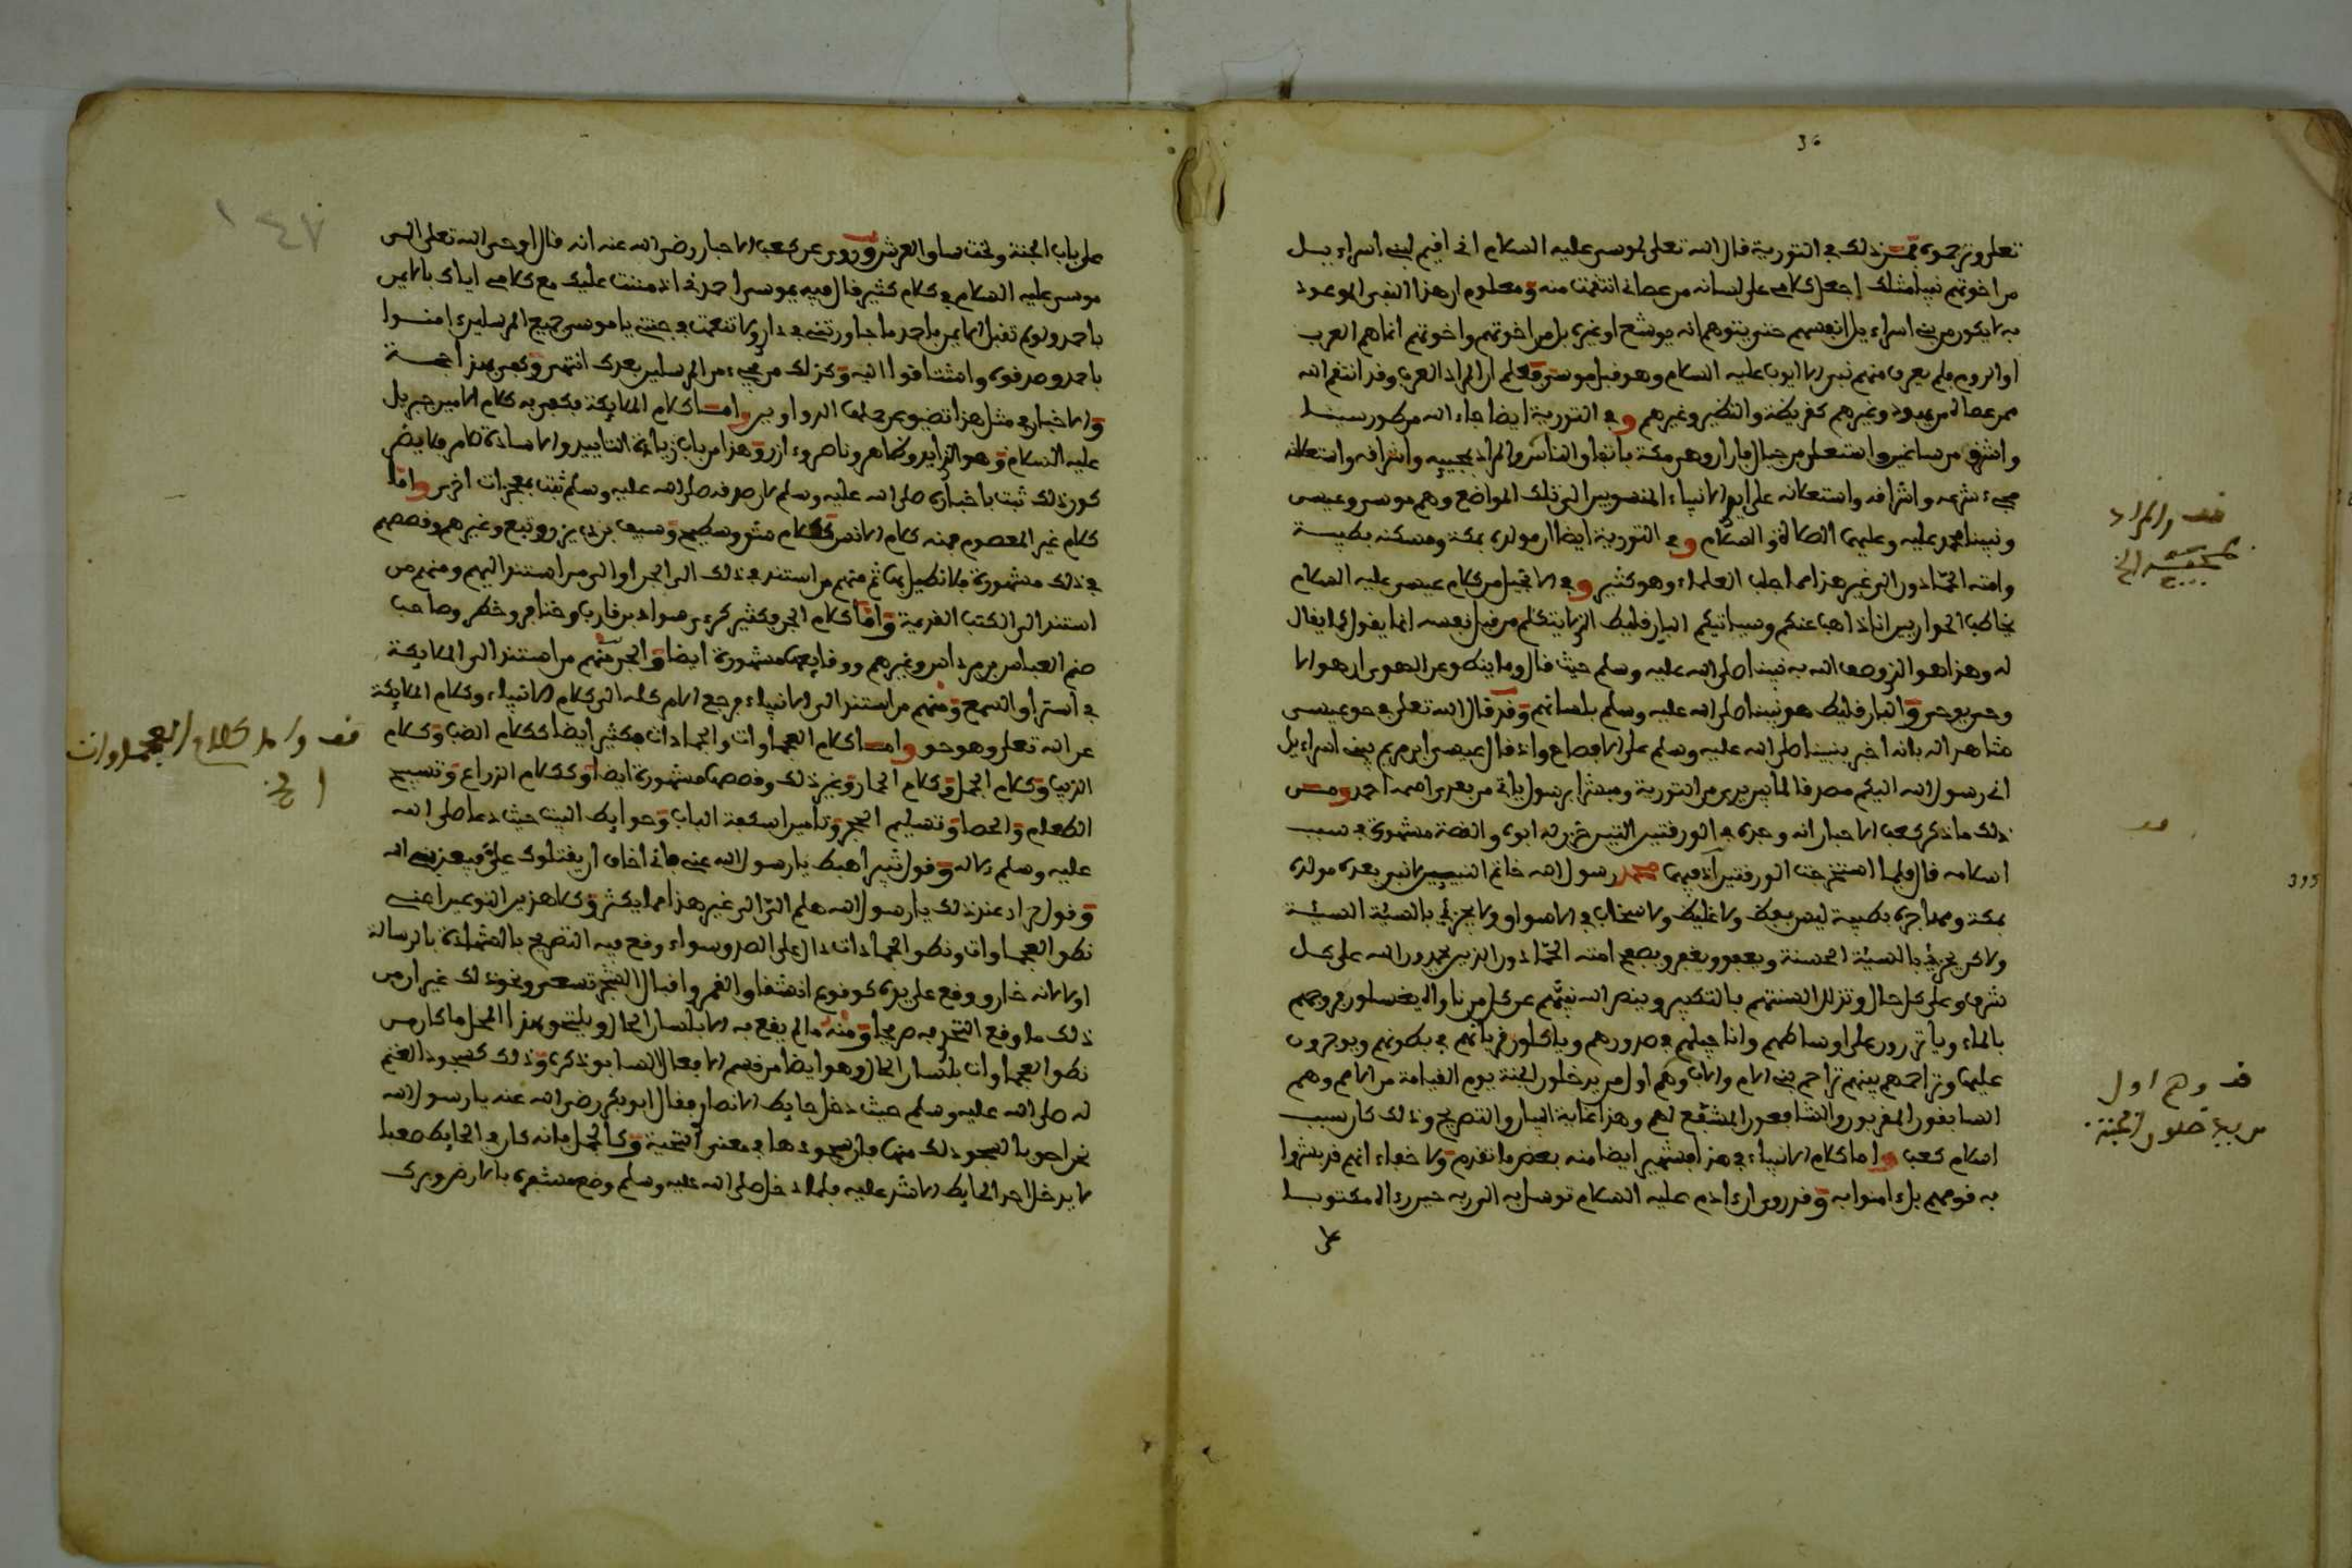 تعلى وترجموه فمن ذلك في التورية قال الله تعلى لموسى عليه السلام اني اقيم لبني اسراءيل
من اخوتهم نبيا مثلك اجعل كلامي على لسانه من عصاني انتقمت منه ومعلوم ان هذا النبي الموعود
به لا يكون من بني اسراءيل انفسهم حتى يتوهم انه يوشع او غيره بل من اخوتهم واخوتهم انما هم العرب
او الروم فلم يعرف منهم نبي الا ايوب عليه السلام وهو قبل موسى فعلم ان المراد العرب وقد انتقم الله
ممن عصاه من يهود وغيرهم كقريظة والنظير وغيرهم وفي التورية ايضا جاء الله من طور سينا
واشرق من ساعير واستعلى من جبال فاران وهي مكة باتفاق الناس والمراد بمجيىه واشرافه واستعلانه
مجيء شرعه واشرافه واستعلانه على ايدي الانبياء المنسوبين الى تلك المواضع وهم موسى وعيسى
ونبينا محمد عليه وعليهما الصلاة والسلام وفي التورية ايضا ان مولده بمكة ومسكنه بطيبة
وامته الحمادون الى غير هذا مما جلب العلماء وهو كثير وفي الانجيل من كلام عيسى عليه السلام
يخاطب الحواريين انا ذاهب عنكم وسياتيكم البارقليط الذي لا يتكلم من قبل نفسه انما يقول كما يقال
له وهذا هو الذي وصف الله به نبينا صلى الله عليه وسلم حيث قال وما ينطق عن الهوى ان هو الا
وحي يوحى والبارقليط هو نبينا صلى الله عليه وسلم بلسانهم وقد قال الله تعلى في حق عيسى
شاهدا له بانه اخبر بنبينا صلى الله عليه وسلم على الافصاح واذ قال عيسى ابن مريم يبني اسراءيل
اني رسول الله اليكم مصدقا لما بين يدي من التورية ومبشرا برسول ياتي من بعدي اسمه احمد ومن
ذلك ما ذكر كعب الاحبار انه وجده في الورقتين التين خزن له ابوه والقصة مشهورة في سبب
اسلامه قال فلما استخرجت الورقتين اذا فيهما محمد رسول الله خاتم النبيين لا نبي بعدي مولده
بمكة ومهاجره بطيبة ليس بفظ ولا غليظ ولا سخاب في الاسواق ولا يجزي بالسيئة السيئة
ولاكن يجزي بالسيئة الحسنة ويعفو ويغفر ويصفح امته الحمادون الذين يحمدون الله على كل
شرف وعلى كل حال وتذلل السنتهم بالتكبير وينصر الله نبيهم على كل من ناواه يغسلون فروجهم
بالماء ويأتزرون على اوساطهم واناجيلهم في صدورهم وياكلون قربانهم في بطونهم ويوجرون
عليها وتراحمهم بينهم تراحم بني الام والاب وهم اول من يدخلون الجنة يوم القيامة من الامم وهم
السابقون المقربون والشافعون المشفع لهم وهذا غاية البيان والتصريح وذلك كان سبب
اسلام كعب واما كلام الانبياء في هذا فشهير ايضا منه بعض ما تقدم ولا خفاء انهم قد بشروا
به قومهم بل ءامنوا به وقد روي ان ءادم عليه السلام توسل به الى ربه حين رءاه مكتوبا
على
قف والمراد
بمجيىه الخ
قف وهم اول
من يدخلون الجنة
على باب الجنة وتحت ساق العرش وروي عن كعب الاحبار رضي الله عنه انه قال اوحى الله تعلى الى
موسى عليه السلام في كلام كثير قال فيه يموسى احمدني اذ مننت عليك مع كلامي اياك بالايمن
باحمد ولو لم تقبل الايمن باحمد ما جاورتني في داري ولا تنعمت في جنتي يا موسى جميع المرسلين ءامنوا
باحمد وصدقوه واشتاقوا اليه وكذلك من يجيء من المرسلين بعدك انتهى وكفى بهذا حجة
والاخبار في مثل هذا تضيق عن جلبها الدواوين واما كلام الملايكة فكفى به كلام الامين جبريل
عليه السلام وهو الذايد وظاهر وناصر وازر وهذا من باب زيادة التاييد والا ساذة لامر فلا يضر
كون ذلك ثبت باخباره صلى الله عليه وسلم لان صدقه صلى الله عليه وسلم ثبت بمعجزات اخر واما
كلام غير المعصوم فمنه كلام الانس ككلام شق وسطيح وسيف بن ذي يزن وتبع وغيرهم وقصصهم
في ذلك مشهورة فلا نطيل بها ثم منهم من استند في ذلك الى الجن او الى من استند اليهم ومنهم من
استند الى الكتب القديمة واما كلام الجن فكثير كرءي سواد بن قارب وخنافر وخطر وصاحب
صنم العباس بن مرداس وغيرهم ووقايعهم مشهورة ايضا والجن منهم من استند الى الملايكة
في استراق السمع ومنهم من استند الى الانبياء فرجع الامر كله الى كلام الانبياء وكلام الملايكة
عن الله تعلى وهو حق واما كلام العجماوات والجمادات فكثير ايضا ككلام الضب وكلام
الذيب وكلام الجمل وكلام الحمار وغير ذلك وقصصها مشهورة ايضا وككلام الذراع وتسبيح
الطعام والحصا وتسليم الحجر وتامين اسكفة الباب وحوايط البيت حيث دعا صلى الله
عليه وسلم لاله وقول ثبير اهبط يا رسول الله عني فاني اخاف ان يقتلوك علي فيعذبني الله
وقول حراء عند ذلك يا رسول الله هلم الي الى غير هذا مما يكثر وكلا هذين النوعين اعني
نطق العجماوات ونطق الجمادات دال على الصدق سواء وقع فيه التصريح بالشهادة بالرسالة
او لا لانه خارق وقع على يده كوقوع انشقاق القمر واقبال الشجر تسعى ونحو ذلك غير ان من
ذلك ما وقع التحدي به صريحا ومنه ما لم يقع به الا بلسان الحال ويلتحق بهذا المحل ما كان من
نطق العجماوات بلسان الحال وهو ايضا من قسم الافعال السابق ذكره وذلك كسجود الغنم
له صلى الله عليه وسلم حيث دخل حايط الانصار فقال ابو بكر رضي الله عنه يا رسول الله
نحن احق بالسجود لك منها فان سجودها في معنى التحية وكالجمل فانه كان في الحايط صعبا
لا يدخل احد الحايط الا شد عليه فلما دخل صلى الله عليه وسلم وضع مشفره بالارض وبرك
قف واما كلام العجماوات
الخ